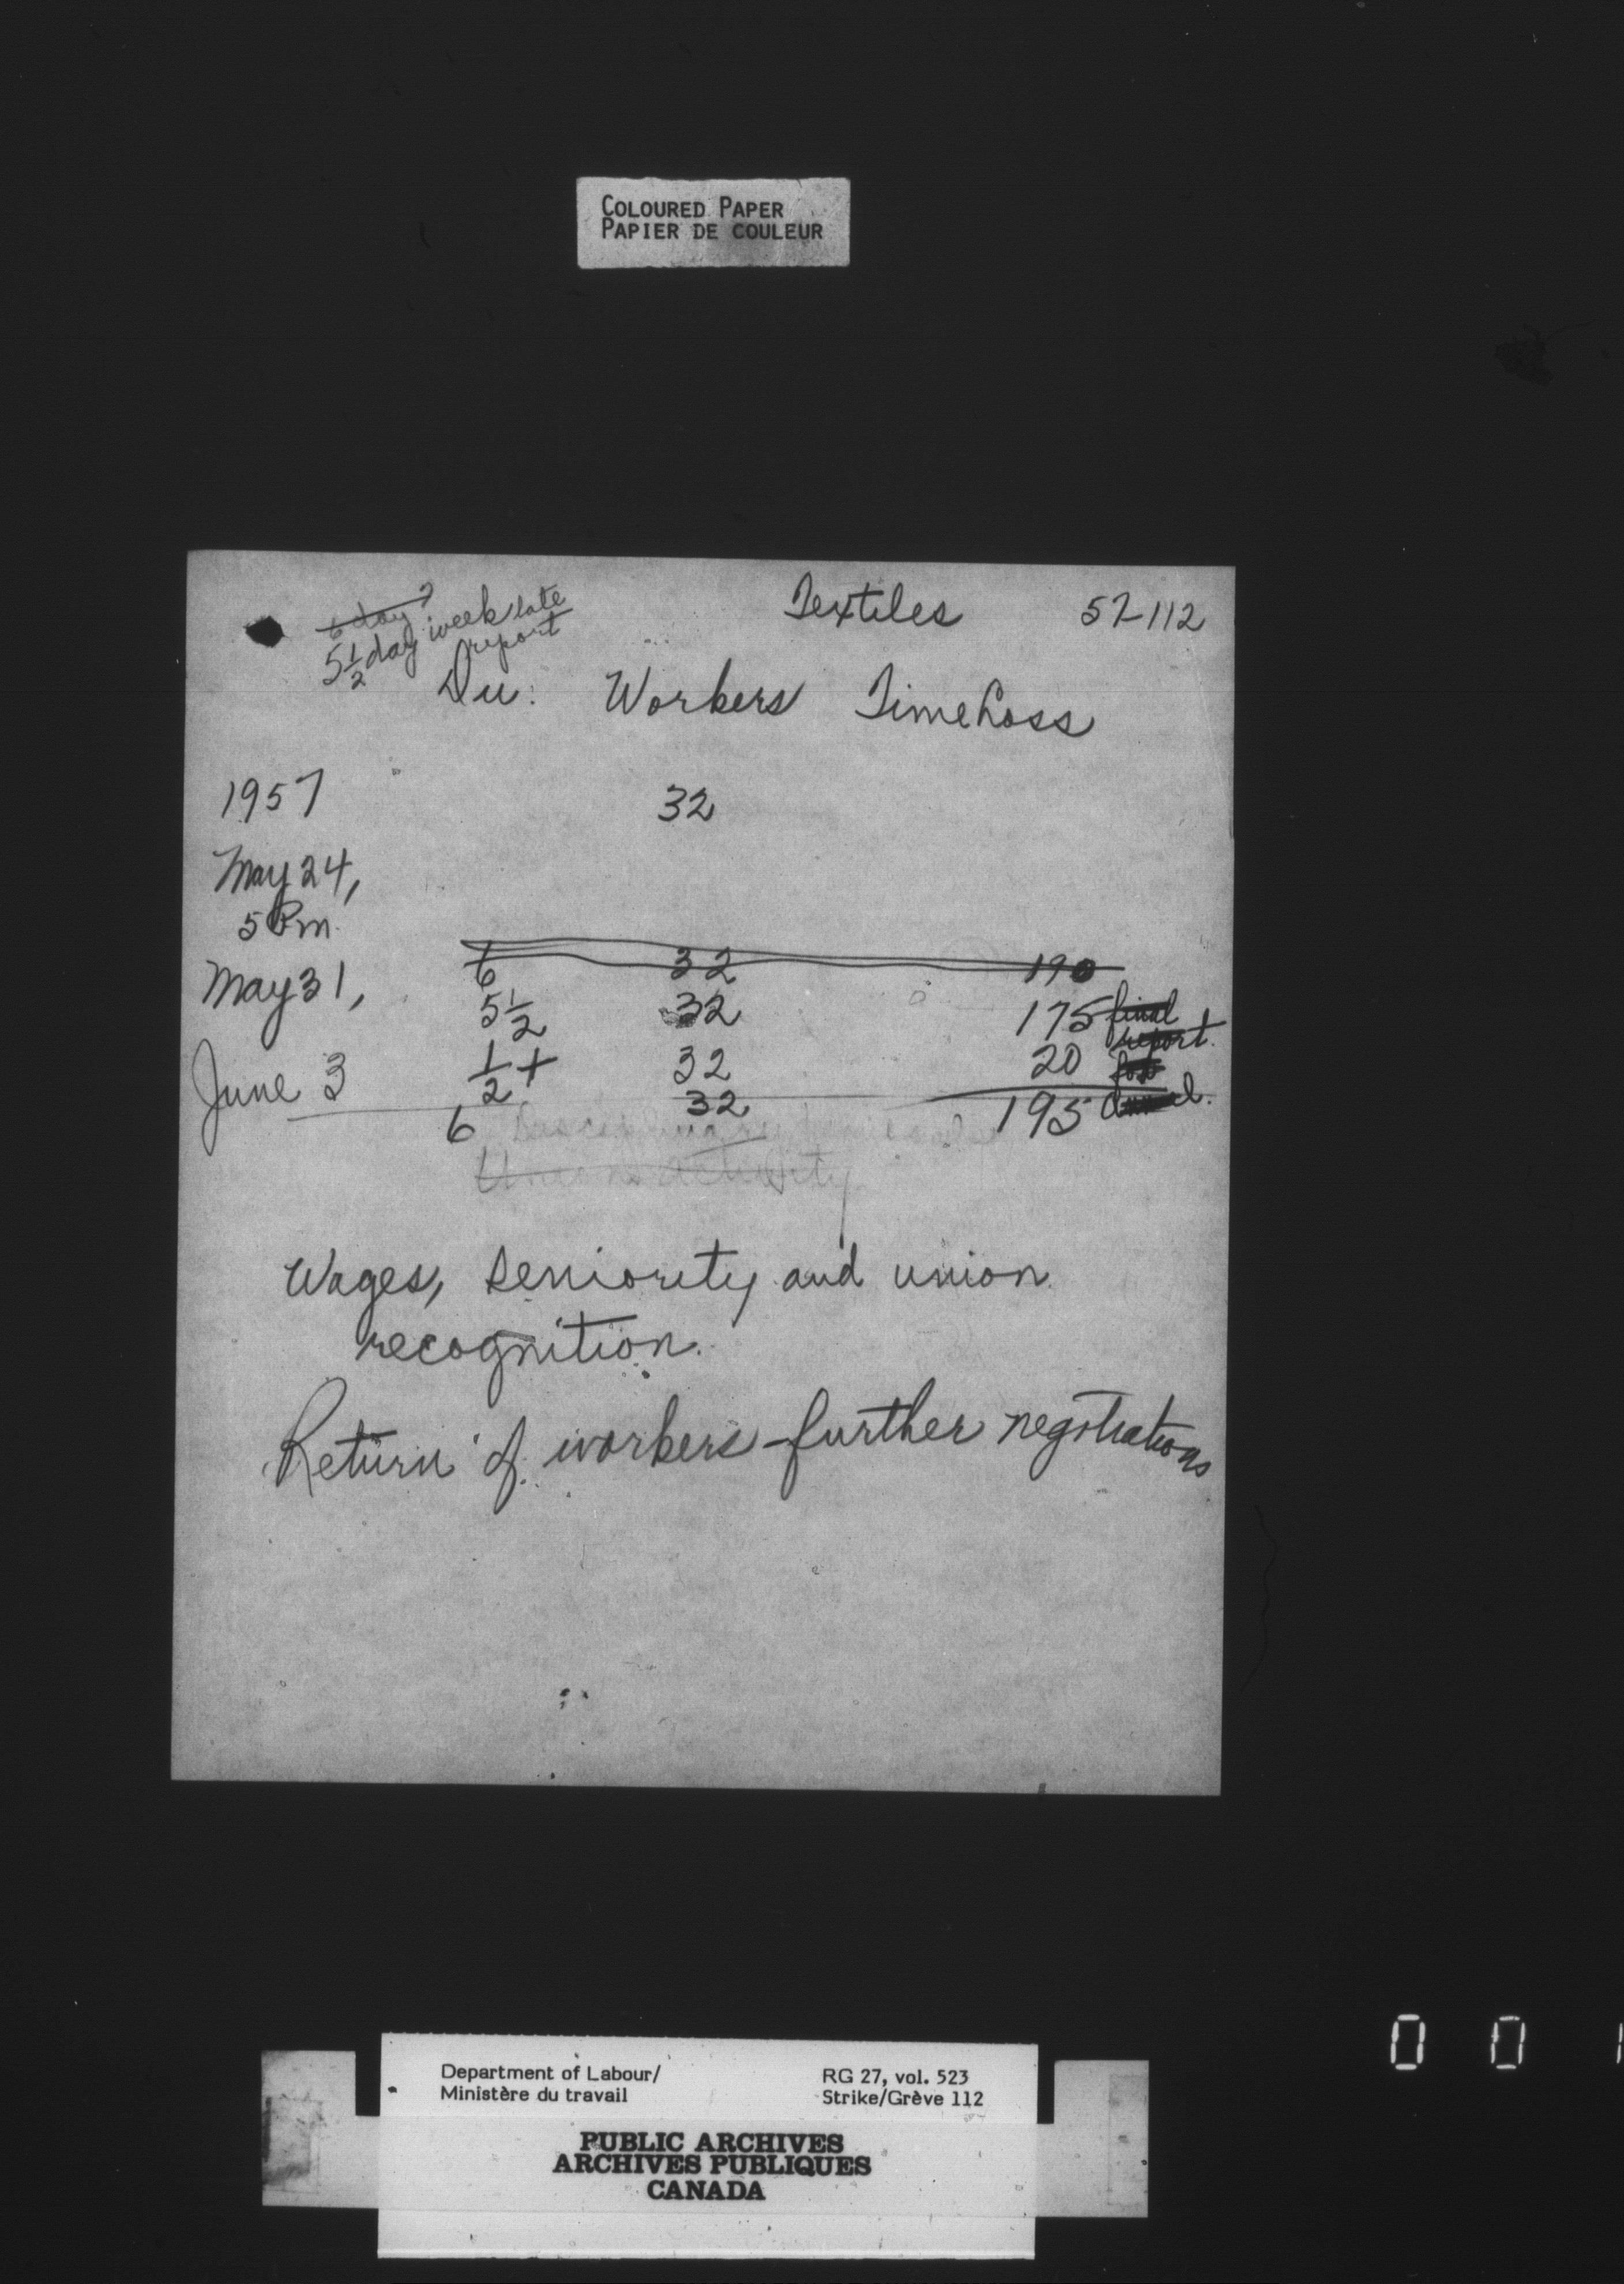 COLOURED PAPER
PAPIER DE COULEUR
6 day ?
5 1/2 day week late
report
Textiles 57-112
Du. Workers Time Loss
1957 32
May 24,
5 P.m.
6 32 190
May 31, 5 1/2 32 175 final
report.
June 3 1/2 + 32 20 for
6 32 195
Union activity
Wages, seniority and union
recognition.
Return of workers - further negotiations
Department of Labour/
Ministère du travail
RG 27, vol. 523
Strike/Grève 112
PUBLIC ARCHIVES
ARCHIVES PUBLIQUES
CANADA
0 0 1